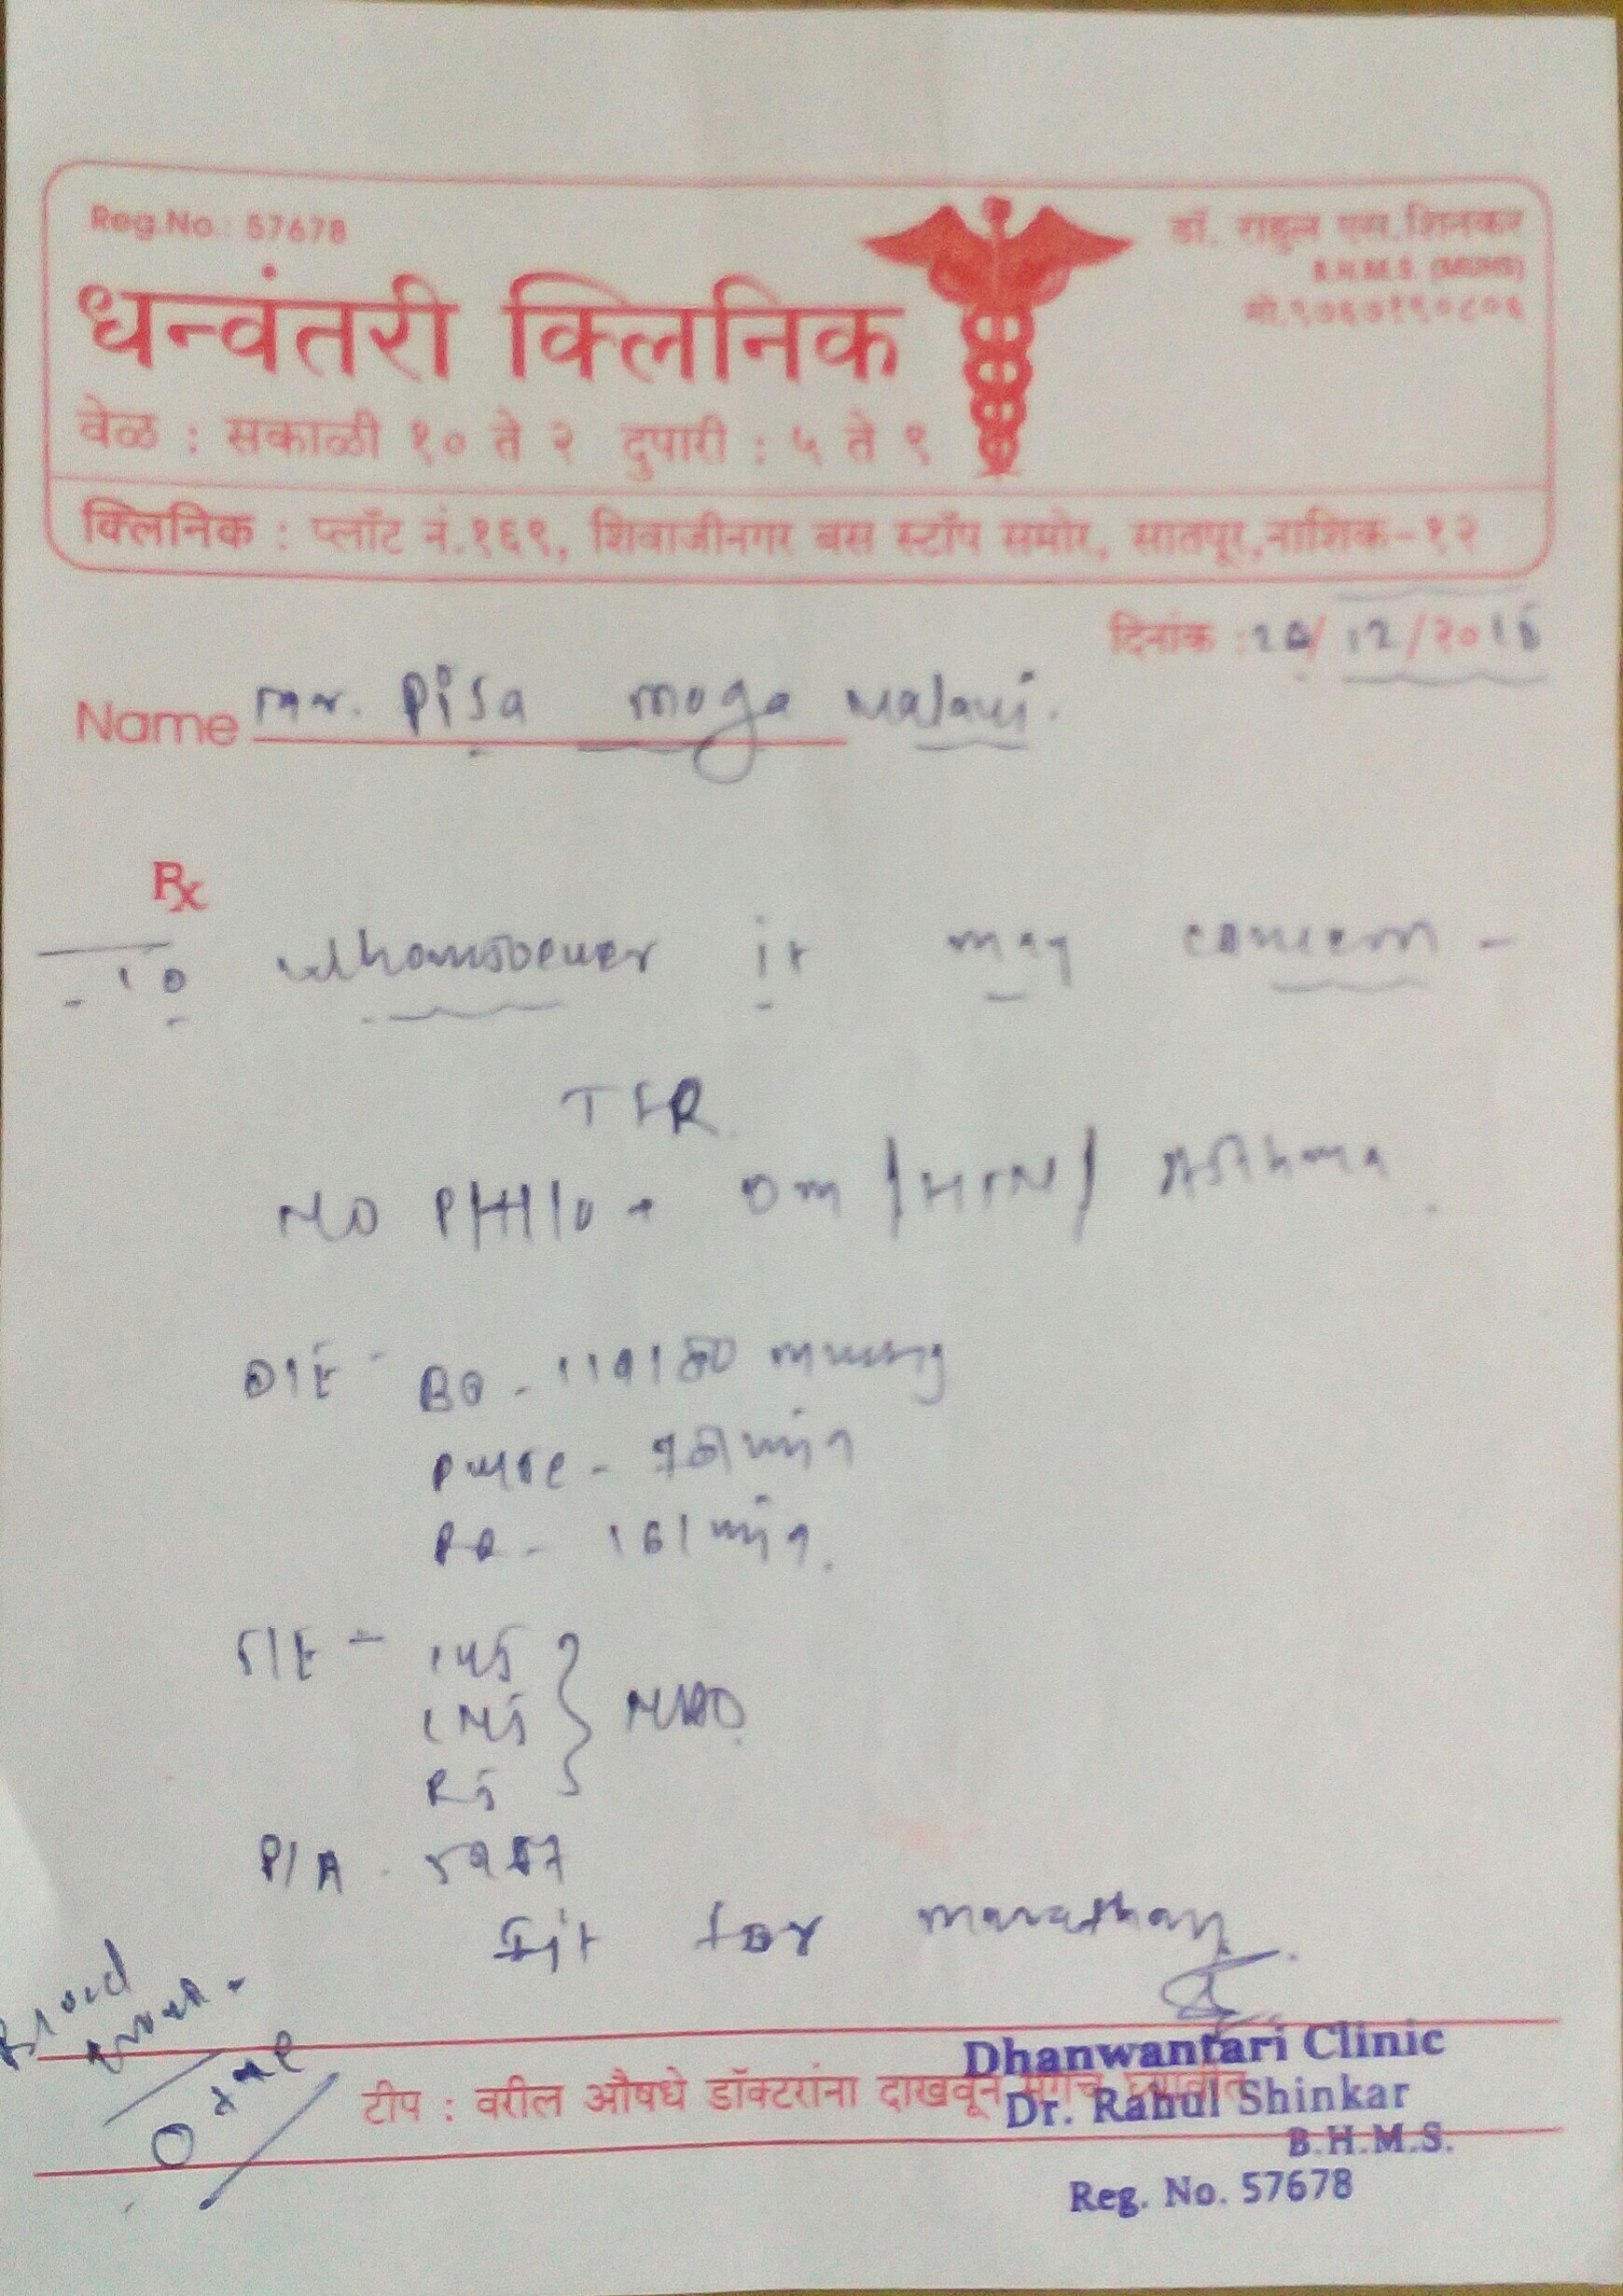 Reg.No.: 57678
डॉ. राहुल एस.शिनकर
B.H.M.S. (MUHS)
धन्वंतरी क्लिनिक
वेळ : सकाळी १० ते २ दुपारी : ५ ते ९
क्लिनिक : प्लॉट नं.१६९, शिवाजीनगर बस स्टॉप समोर, सातपूर,नाशिक-१२
दिनांक : /12/२०
Name mr. Pisa moga
Rx
To whomsoever it may concern -
NO P/H/O - DM /HTN/ Asthma.
O/E - BP - 110/80 mmHg
pulse - 76/min
RR - 16/min.
S/E - CVS
CNS NAD
RS
P/A - soft
Fit for marathan
Blood
group -
O +ve
Dhanwantari Clinic
टीप : वरील औषधे डॉक्टरांना दाखवून मगच घ्यावीत
Dr. Rahul Shinkar
B.H.M.S.
Reg. No. 57678